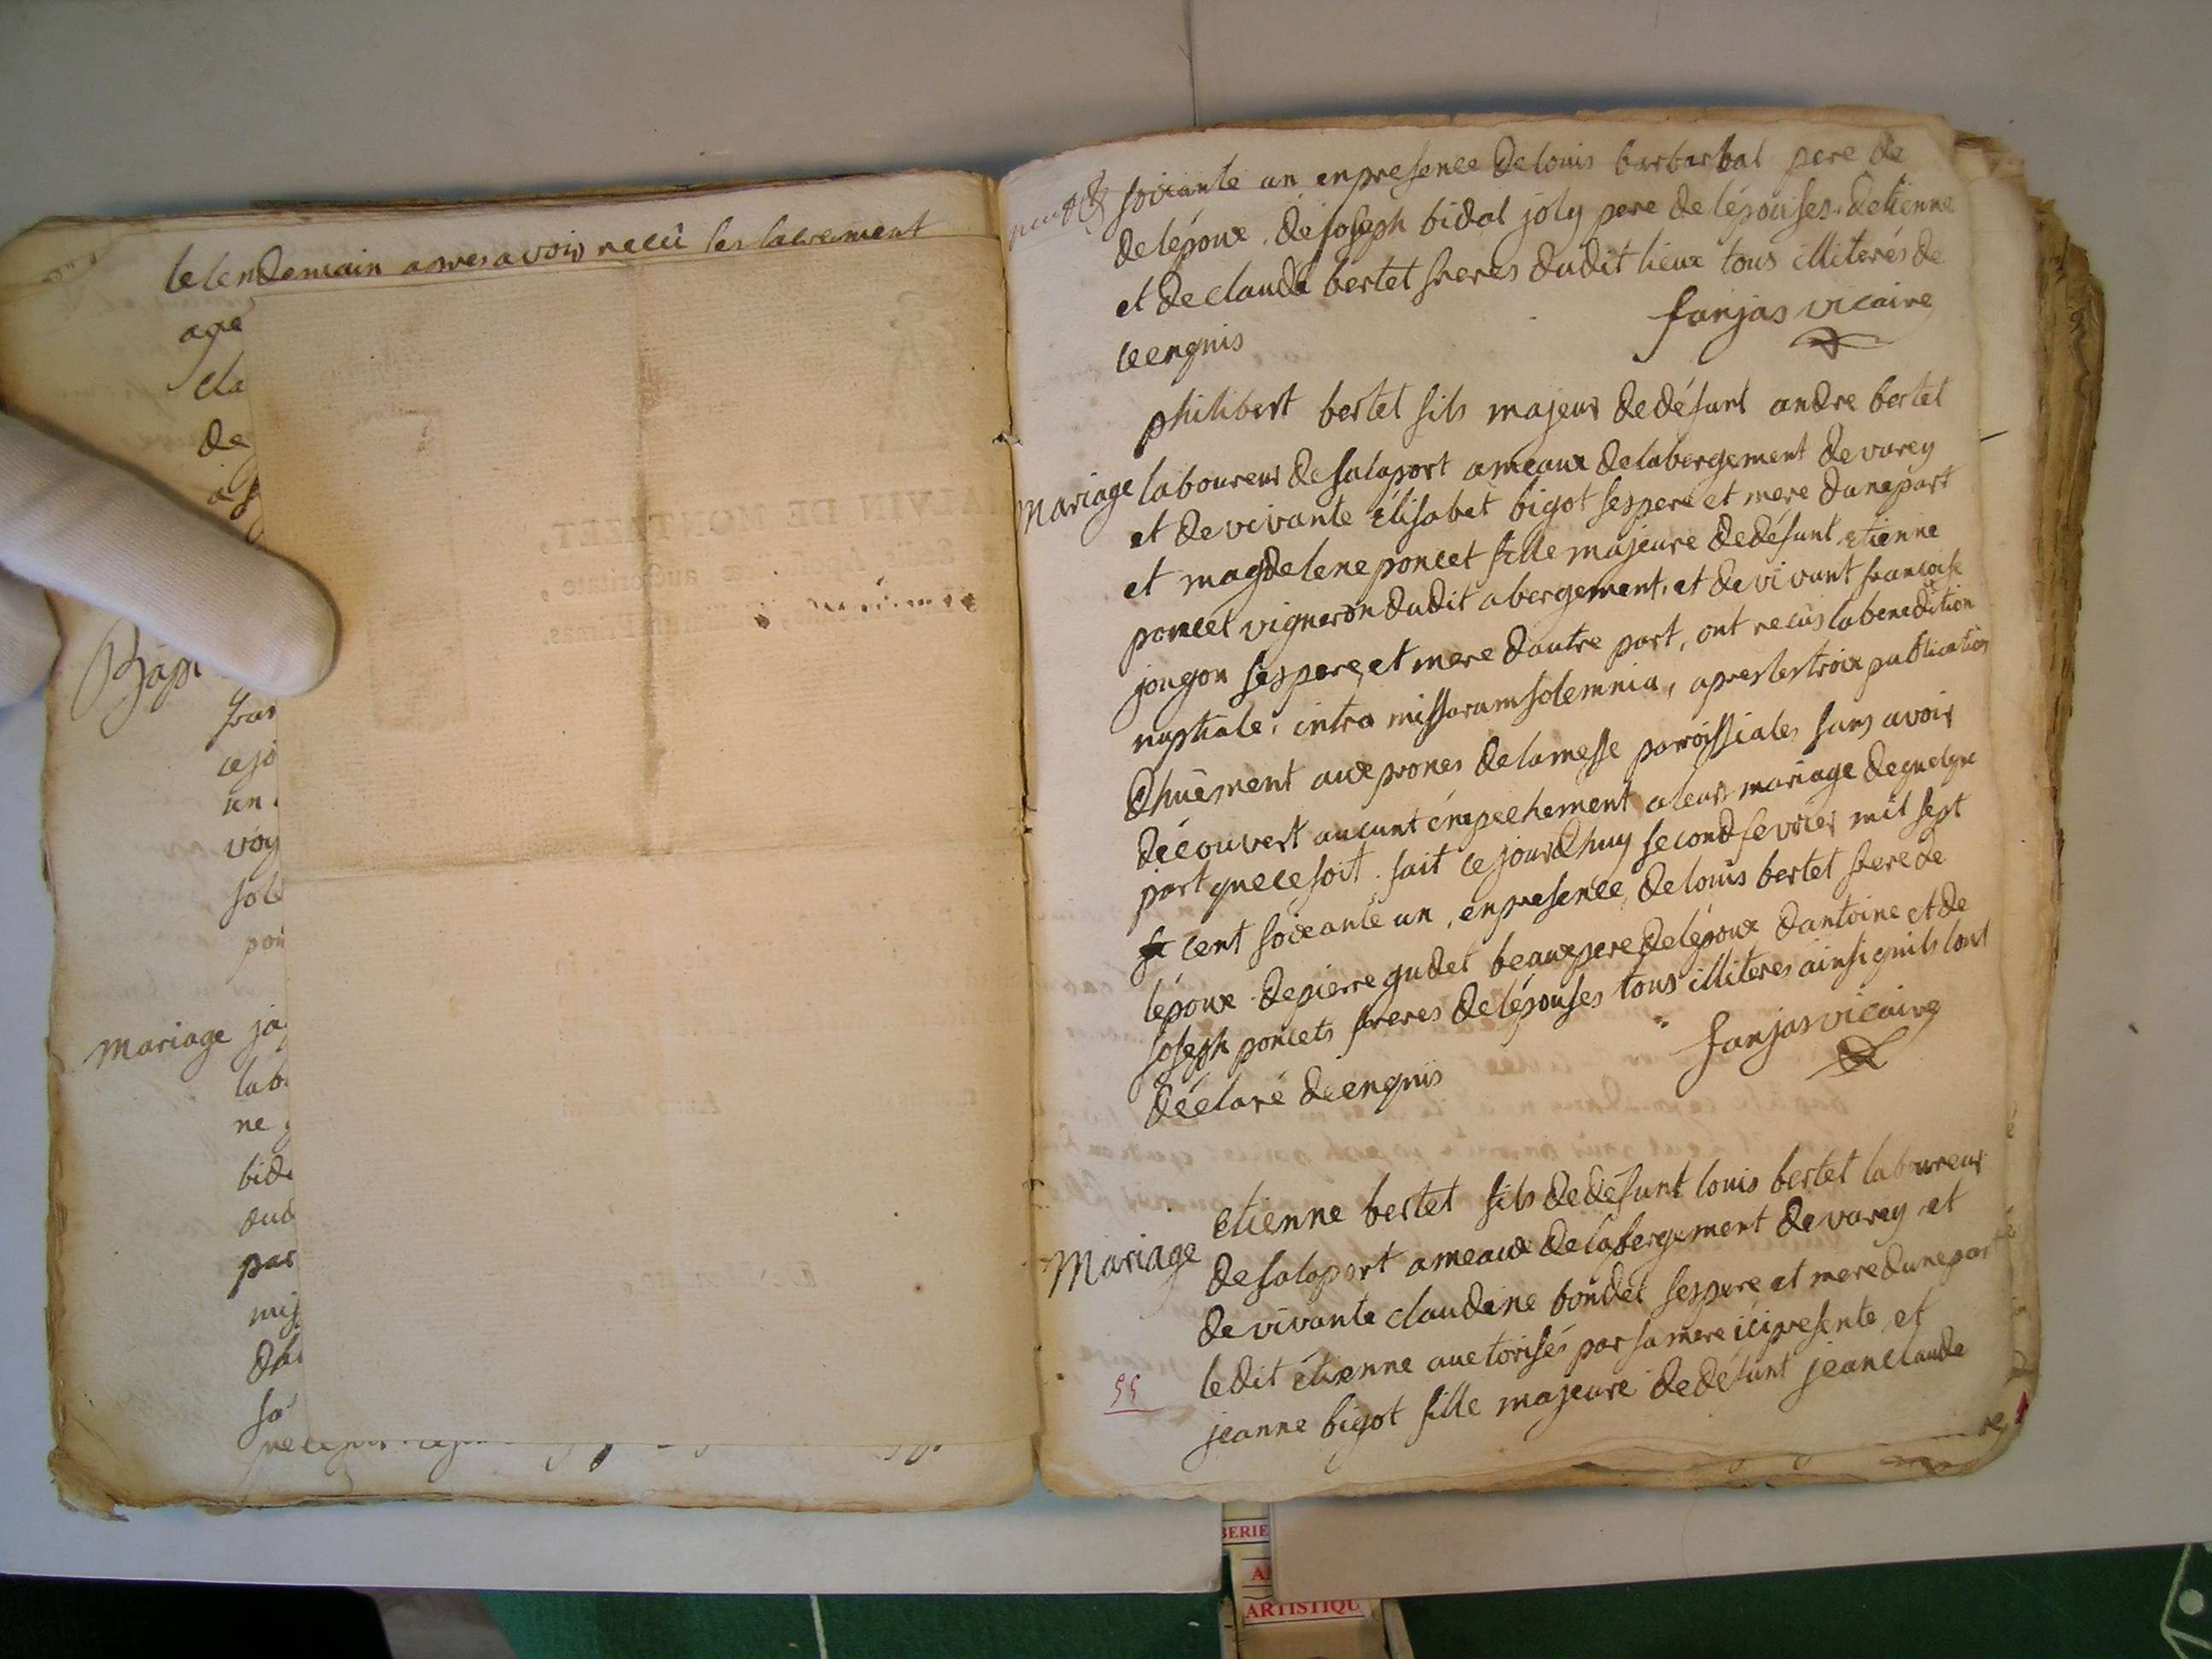 le lendemain apres avoir recû les sacrement
age
cla
de
Bapt
fran
ce jo
un
voy
sole
pon
Mariage ja
lab
ne
bide
dud
par
mis
dhu
sa
MALVIN DE MONTAZET,
autorité,
soixante un en presence de louis barbarbal pere de
de lépoux. de joseph bidal joly pere de lépouses. detienne
et de claude bertet freres dudit lieux tous illiterés de
ce enquis
fanjas vicaire
philibert bertet fils majeur de défunt andre bertet
Mariage laboureur de salaport ameaux de labergement de varey
et de vivante élisabet bigot ses pere et mere dune part
et magdelene poncet fille majeure de défunt etienne
poncet vigneron dudit abergement, et de vivant francoise
jougon ses pere et mere dautre part, ont recûs la benediction
nuptiale, intra missarum solemnia, apres les troix publication
dhuement aux prones de la messe parroissiales sans avoir
découvert aucunt émpechement a leur mariage de quelque
part que ce soit. fait ce jourdhuy second fevrier mil sept
cent soixante un, en presence, de louis bertet frere de
lépoux. de pierre gudet beaux pere de lépoux dantoine et de
joseph poncets freres de lépouses tous illiteres ainsi quils lont
déclaré de enquis
fanjas vicaire
etienne bertet fils de défunt louis bertet laboureur
Mariage de salaport ameaux de labergement de varey et
de vivante claudine bondet ses pere et mere dune part
ledit étienne auctorisés par sa mere ici presente et
55
jeanne bigot fille majeure de défunt jean claude
BERIE
ARTISTIQU